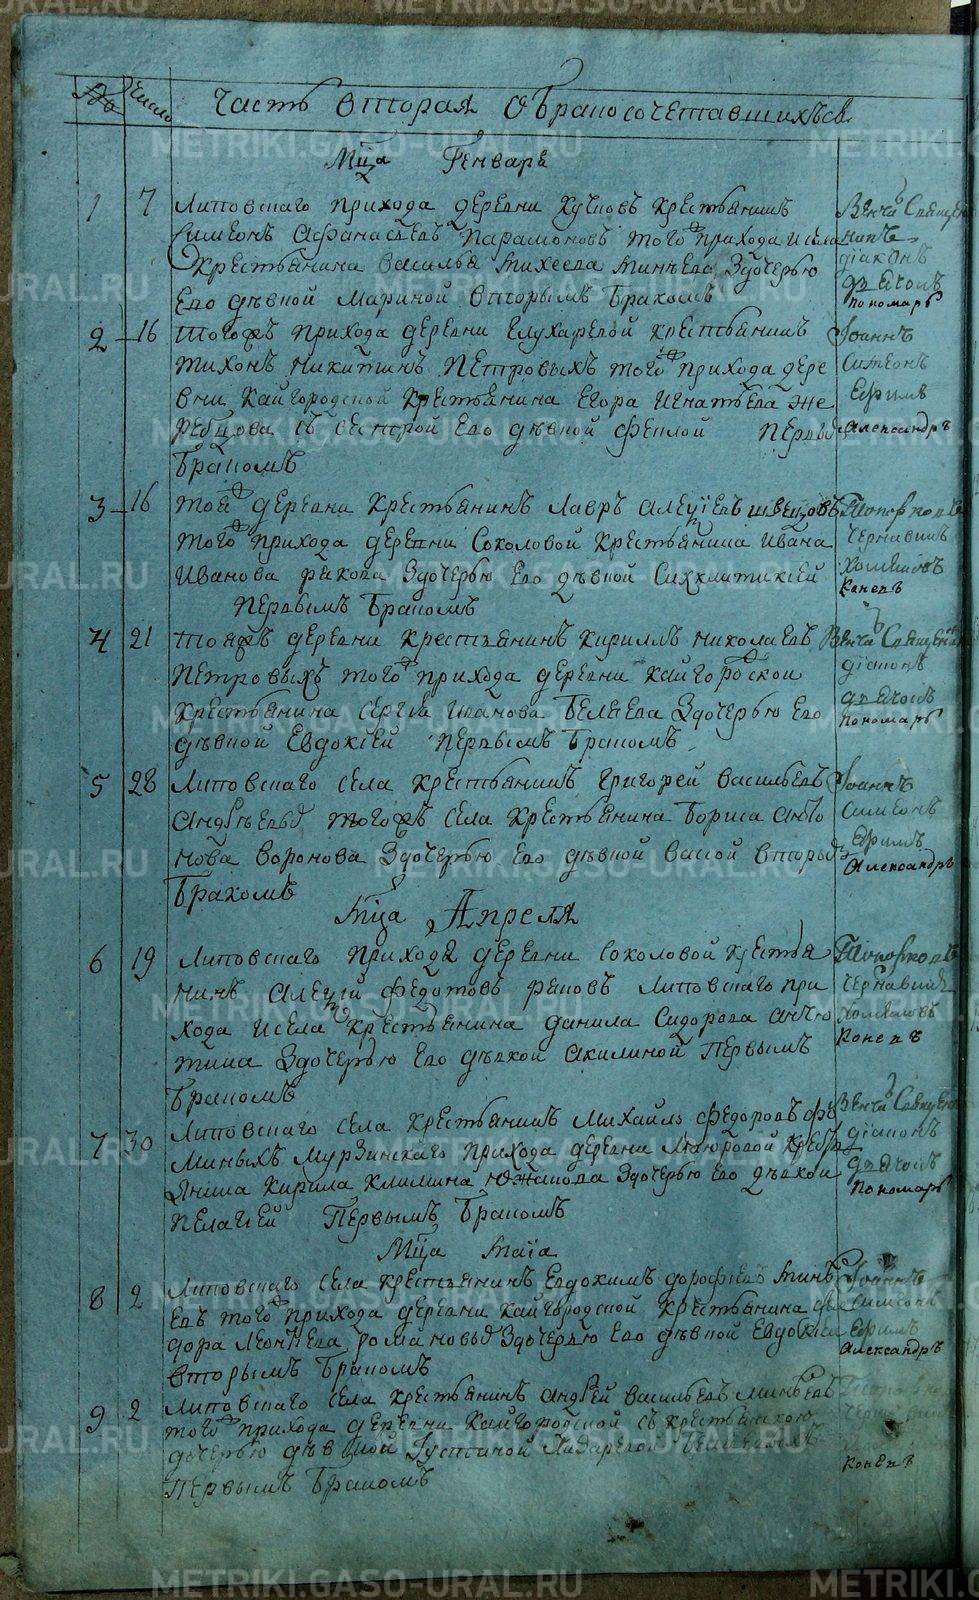 Число Часть вторая о бракосочетавшихся
Мца Генваря
1 7 Липовскаго прихода деревни Кучковъ крестьянинъ
Симеонъ Афанасьевъ Парамоновъ того прихода и села
крестьянина Василья Михеева Минѣева здочерью
его дѣвкой Мариной вторымъ бракомъ
Венча Священникъ
діаконъ
дьячокъ
пономарь
2 16 тогожъ прихода деревни Елухаревой крестьянинъ
Тихонъ Никитинъ Петровыхъ того прихода дере
вни Кайгородской крестьянина Егора Игнатьева же
ребцова съ сестрой его дѣвкой Феклой первы
бракомъ
Іоаннъ
Симеонъ
Ефимъ
Александръ
3 16 тоя деревни крестьянинъ Лавръ Алеѯіевъ Швецовъ
того прихода деревни Соколовой крестьянина Ивана
Иванова рякова здочерью его дѣвкой Синклитикіей
первымъ бракомъ
Топорковъ
Чернавинъ
Хомяковъ
Коневъ
4 21 тояжъ деревни крестьянинъ Кириллъ Николаевъ
Петровыхъ того прихода деревни Кайгородской
крестьянина Сергія Иванова Беляева здочерью его
дѣвкой Евдокіей первымъ бракомъ
Венча Священикъ
діаконъ
дьячокъ
пономарь
5 28 Липовскаго села крестьянинъ Григорей Васильевъ
Андреевы тогожъ села крестьянина Бориса Анто
нова Воронова здочерью его дѣвкой Вассой вторы
бракомъ
Іоаннъ
Симеонъ
Ефимъ
Александръ
Мца Апреля
6 19 Липовскаго прихода деревни Соколовой крестья
нинъ Алеѯій Федотовъ ряковъ Липовскаго при
хода и села крестьянина Данила Сидорова Антю
шина здочерью его дѣвкой Акилиной первымъ
бракомъ
Топорковъ
Чернавинъ
Хомяковъ
Коневъ
7 30 Липовскаго села крестьянинъ Михайло Федоровъ Фо
миныхъ Мурзинскаго прихода деревни Маюровой крестья
янина Кирила Климина Южакова здочерью его дѣвкой
Пелагіей первымъ бракомъ
Венча Священикъ
діаконъ
дьячокъ
пономарь
Мца Маія
8 2 Липовскаго села крестьянинъ Евдокимъ Дорофіевъ Минѣ
евъ того прихода деревни Кайгородской крестьянина Фе
дора Леонтьева Романовы здочерью его дѣвкой Евдокіей
вторымъ бракомъ
Іоаннъ
Симеонъ
Ефимъ
Александръ
9 2 Липовскаго села крестьянинъ Андрей Васильевъ Минѣевъ
того прихода деревни Кайгородской съ крестьянскою
дочерью дѣвкой Іустиной
первымъ бракомъ
Коневъ